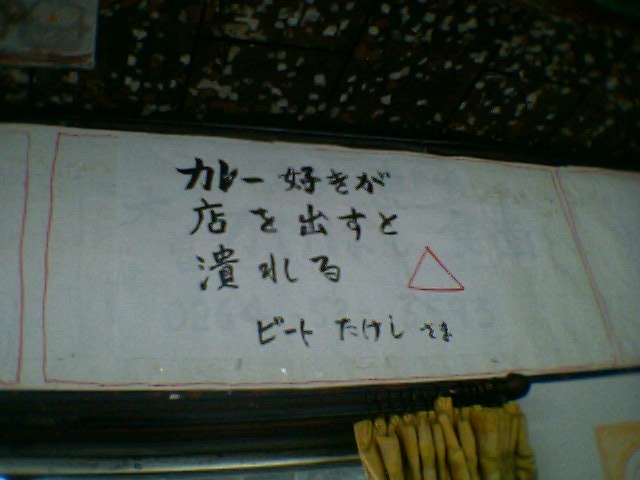 カレー好きが
店を出すと
潰れる
ビートたけしさま